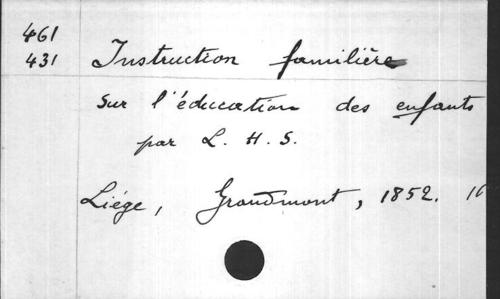 461
431
Instruction familière
sur l'éducation des enfants
par L. H. S.
Liége, Grandmont, 1852.